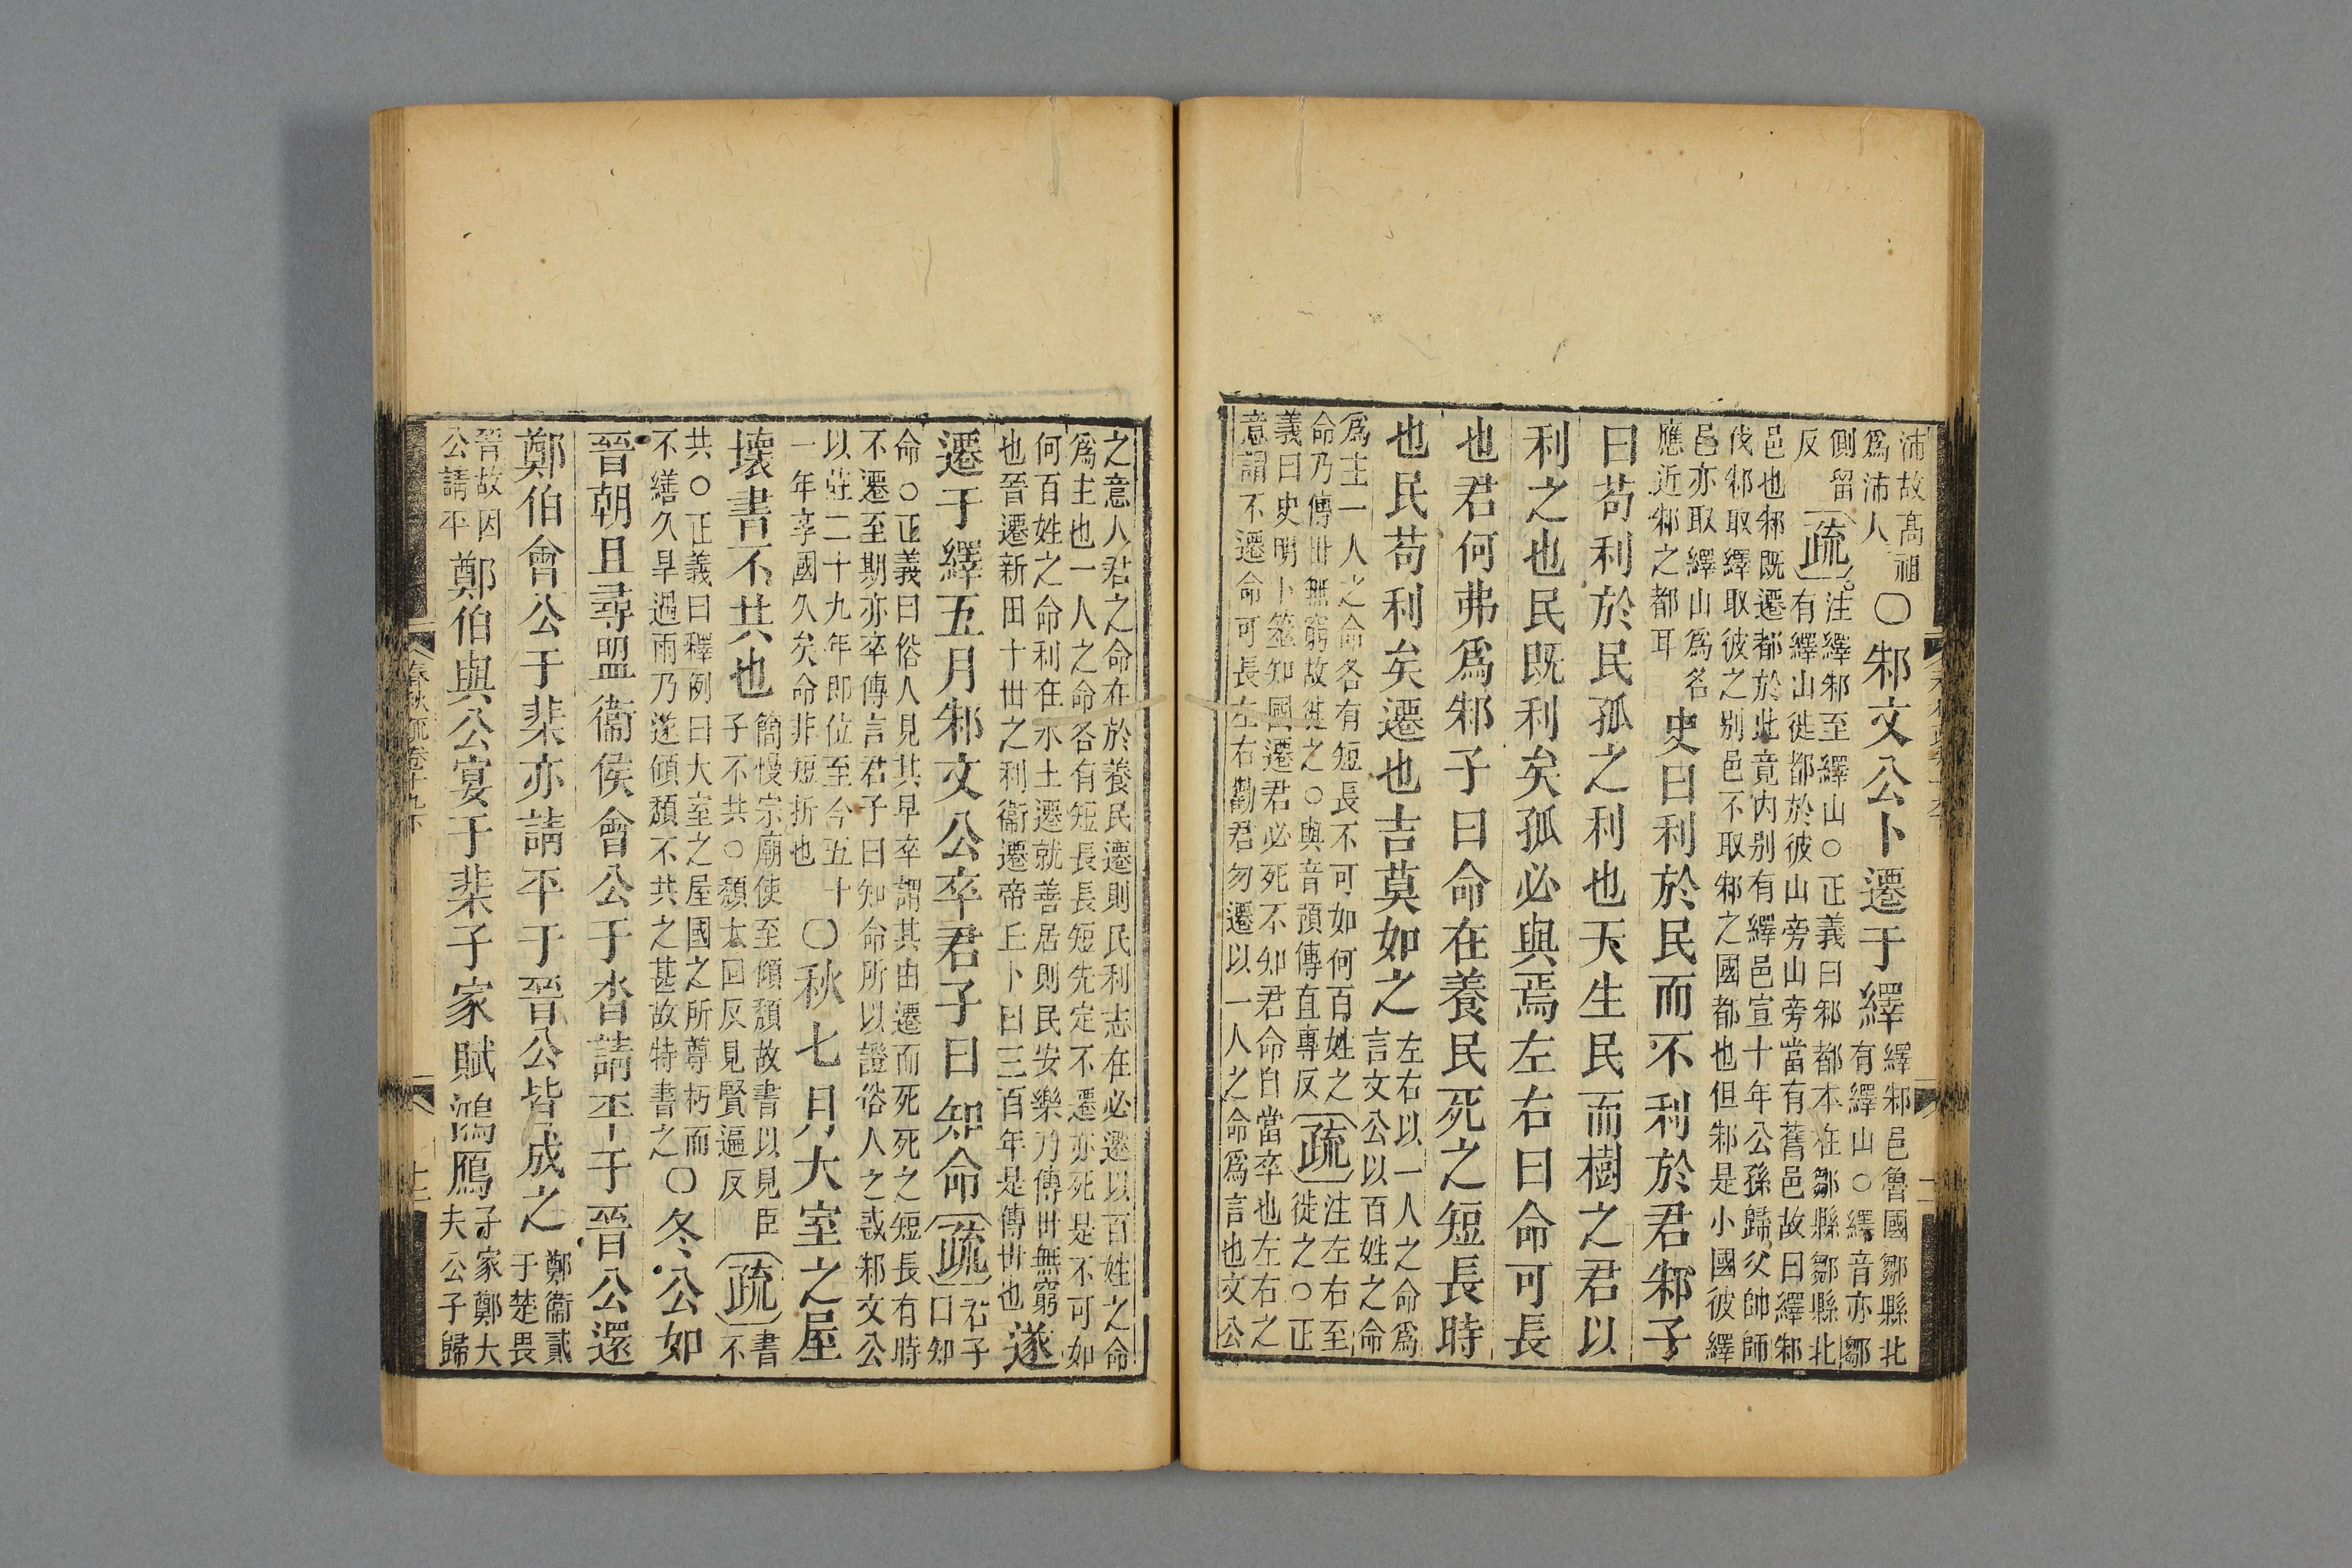 沛故高祖
爲沛人
〇邾文公卜遷于繹
繹邾邑魯國鄒縣北
有繹山○繹音亦鄒
側留
反
疏
注繹邾至繹山○正義曰邾都本在鄒縣鄒縣北
有繹山徙都於彼山旁山旁當有舊邑故曰繹邾
邑也邾既遷都於此竟内别有繹邑宣十年公孫歸父帥師
伐邾取繹取彼之别邑不取邾之國都也但邾是小國彼繹
邑亦取繹山爲名
應近邾之都耳
史曰利於民而不利於君邾子
曰苟利於民孤之利也天生民而樹之君以
利之也民既利矣孤必與焉左右曰命可長
也君何弗爲邾子曰命在養民死之短長時
也民苟利矣遷也吉莫如之
左右以一人之命爲
言文公以百姓之命
爲主一人之命各有短長不可如何百姓之
命乃傳世無窮故徙之○與音預傳直專反
疏
注左右至
徙之○正
義曰史明卜筮知國遷君必死不知君命自當卒也左右之
意謂不遷命可長左右勸君勿遷以一人之命爲言也文公
之意人君之命在於養民遷則民利志在必遷以百姓之命
爲主也一人之命各有短長長短先定不遷亦死是不可如
何百姓之命利在水土遷就善居則民安樂乃傳世無窮
也晉遷新田十世之利衞遷帝丘卜曰三百年是傳世也
遂
遷于繹五月邾文公卒君子曰知命
疏
君子
曰知
命○正義曰俗人見其早卒謂其由遷而死死之短長有時
不遷至期亦卒傳言君子曰知命所以證俗人之惑邾文公
以莊二十九年即位至今五十
一年享國久矣命非短折也
〇秋七月大室之屋
壞書不共也
簡慢宗廟使至傾頹故書以見臣
子不共○頹大回反見賢遍反
疏
書
不
共○正義曰釋例曰大室之屋國之所尊朽而
不繕久旱遇雨乃遂傾頹不共之甚故特書之
〇冬公如
晉朝且尋盟衞侯會公于沓請平于晉公還
鄭伯會公于棐亦請平于晉公皆成之
鄭衞貳
于楚畏
晉故因
公請平
鄭伯與公宴于棐子家賦鴻鴈
子家鄭大
夫公子歸
春秋疏卷十九下
十二